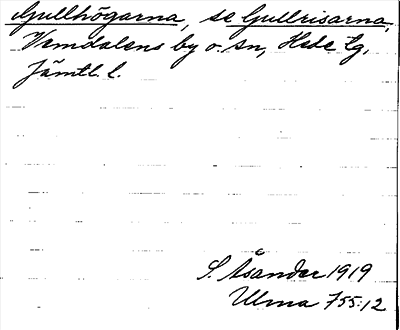 Gullhögarna, se Gullrisarna,
Vemdalens by o. sn, Hede tg,
Jämtl. l.
S. Åsander 1919
Ulma 755:12